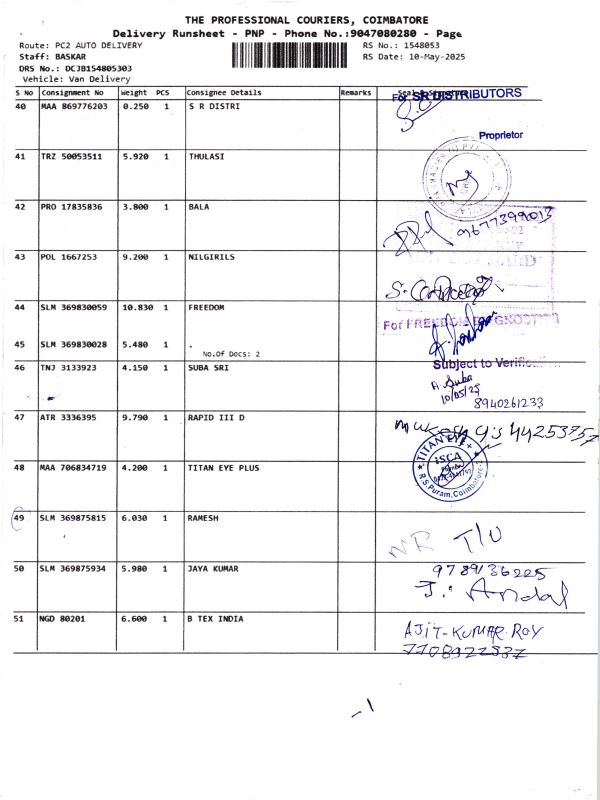 THE PROFESSIONAL COURIERS, COIMBATORE
Delivery Runsheet - PNP - Phone No.:9047080280 - Page
Route: PC2 AUTO DELIVERY RS No.: 1548053
Staff: BASKAR RS Date: 10-May-2025
DRS No.: DCJB154805303
Vehicle: Van Delivery
S No Consignment No Weight PCS Consignee Details Remarks
For SR DISTRIBUTORS
40 MAA 869776203 0.250 1 S R DISTRI
Proprietor
41 TRZ 50053511 5.920 1 THULASI
42 PRO 17835836 3.800 1 BALA
9677399013
43 POL 1667253 9.200 1 NILGIRILS
44 SLM 369830059 10.830 1 FREEDOM
For FREEDOM
45 SLM 369830028 5.480 1 .
No.Of Docs: 2
Subject to
46 TNJ 3133923 4.150 1 SUBA SRI
A. Suba
10/05/25
8940261233
47 ATR 3336395 9.790 1 RAPID III D
TITAN EYE +
iSCA
R.S.Puram, Coimbatore-2
48 MAA 706834719 4.200 1 TITAN EYE PLUS
49 SLM 369875815 6.030 1 RAMESH
NR T/U
50 SLM 369875934 5.980 1 JAYA KUMAR
9789136225
J. Andal
51 NGD 80201 6.600 1 B TEX INDIA
AJIT-KUMAR.ROY